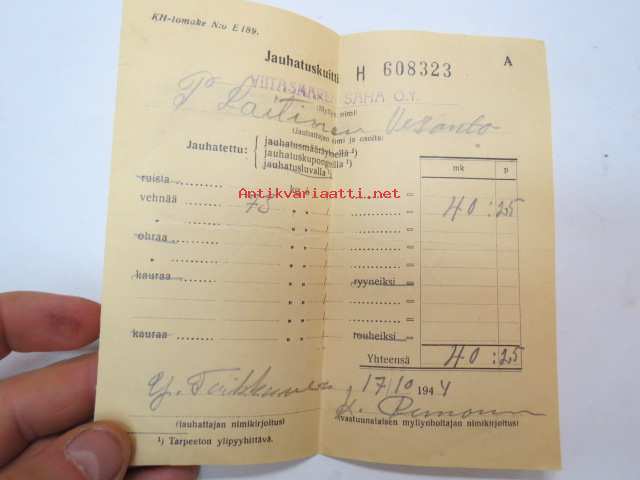 KH-lomake N:o E 189.
A
Jauhatuskuitti H 608323
VIITASAAREN SAHA O.Y.
(Myllyn nimi)
P Laitinen Vesanto
(Jauhattajan nimi ja osoite)
Jauhatettu: { jauhatusmääräyksellä ¹)
jauhatuskupongeilla ¹)
jauhatusluvalla ¹)
mk p
Antikvariaatti.net
ruista kg à =
vehnää 75 " " = 40 : 25
" " " =
ohraa " " =
" " " =
kauraa " " ryyneiksi =
" " =
" " =
kauraa " " rouheiksi =
Yhteensä 40 : 25
17/10 1944
(Jauhattajan nimikirjoitus) (Vastuunalaisen myllynhoitajan nimikirjoitus)
¹) Tarpeeton ylipyyhittävä.